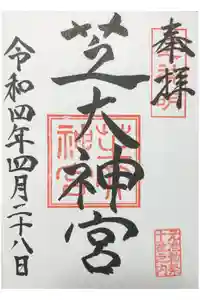 奉拝
芝大神宮
令和四年四月二十八日